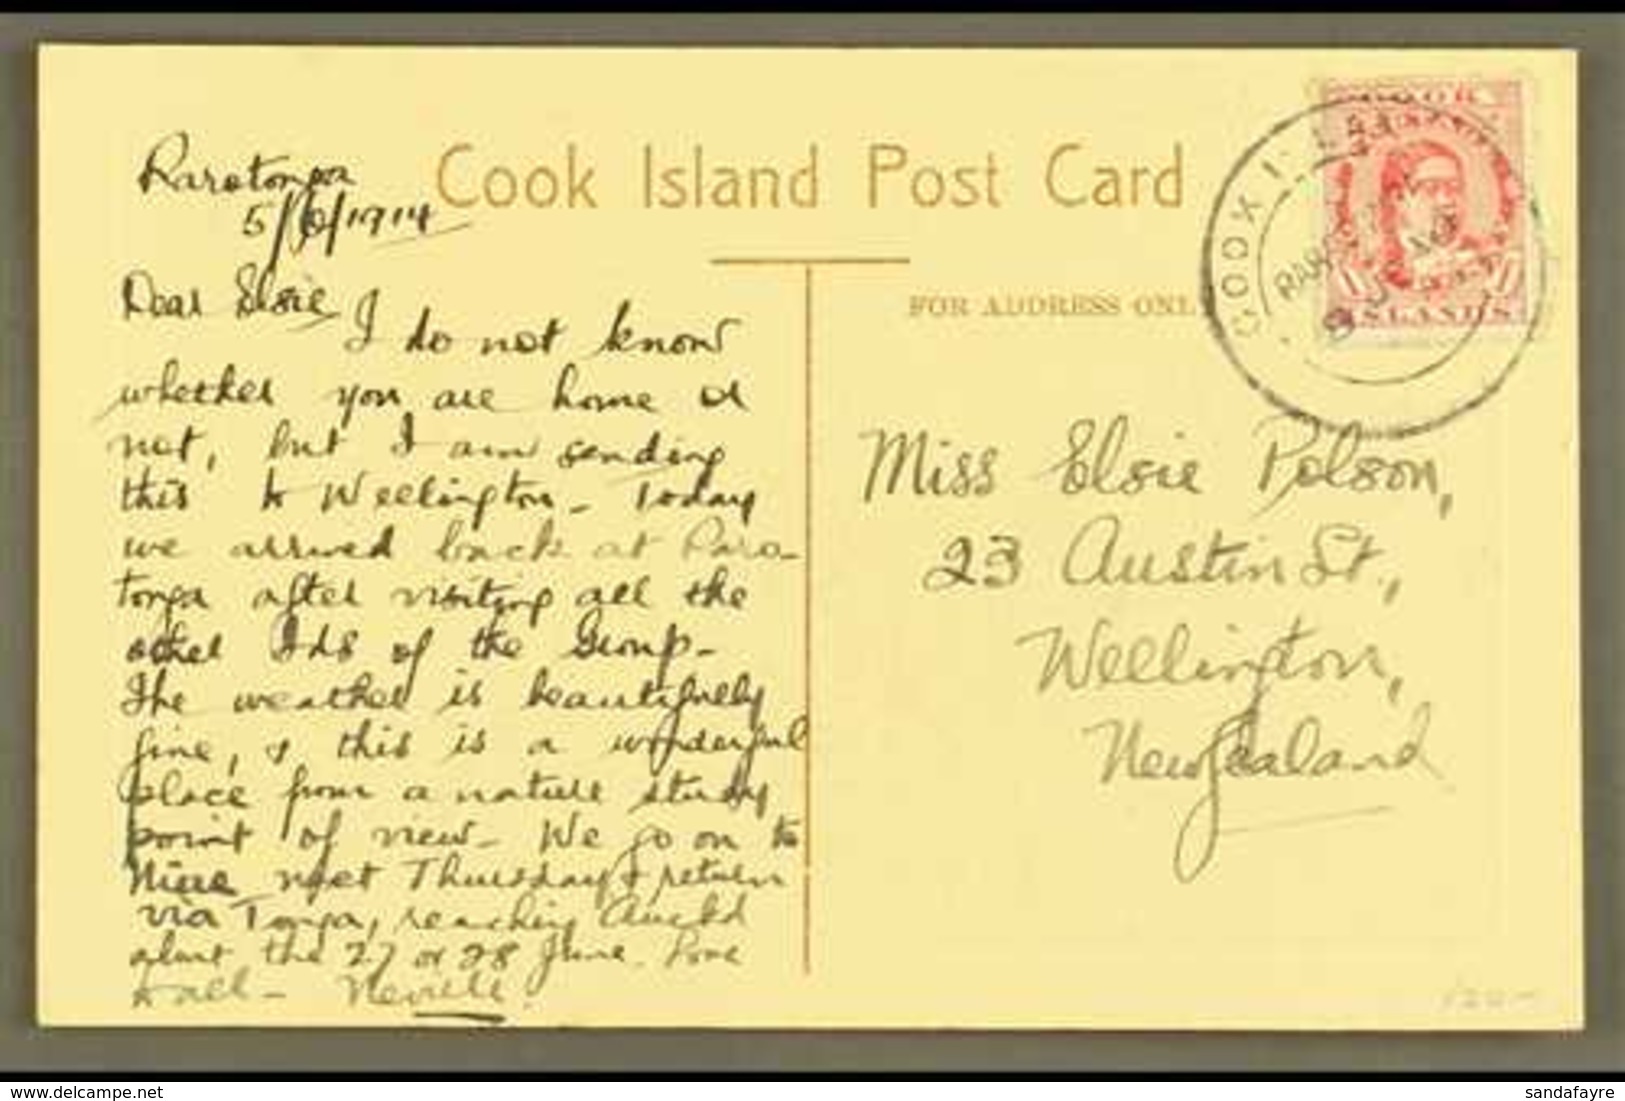 Cook Island Post Card
Rarotonga
5/6/1914
FOR ADDRESS ONLY
COOK ISLANDS
ISLANDS
Dear Elsie
I do not know
whether you are home or
not, but I am sending
this to Wellington - Today
we arrived back at Raro-
tonga after visiting all the
other Ids of the Group -
The weather is beautifully
fine, & this is a wonderful
place from a nature study
point of view - We go on to
Niue next Thursday & return
via Tonga, reaching Auckd
about the 27 or 28 June. Love
to all - Neville.
Miss Elsie Polson,
23 Austin St.,
Wellington,
New Zealand
delcampe.net
sandafayre